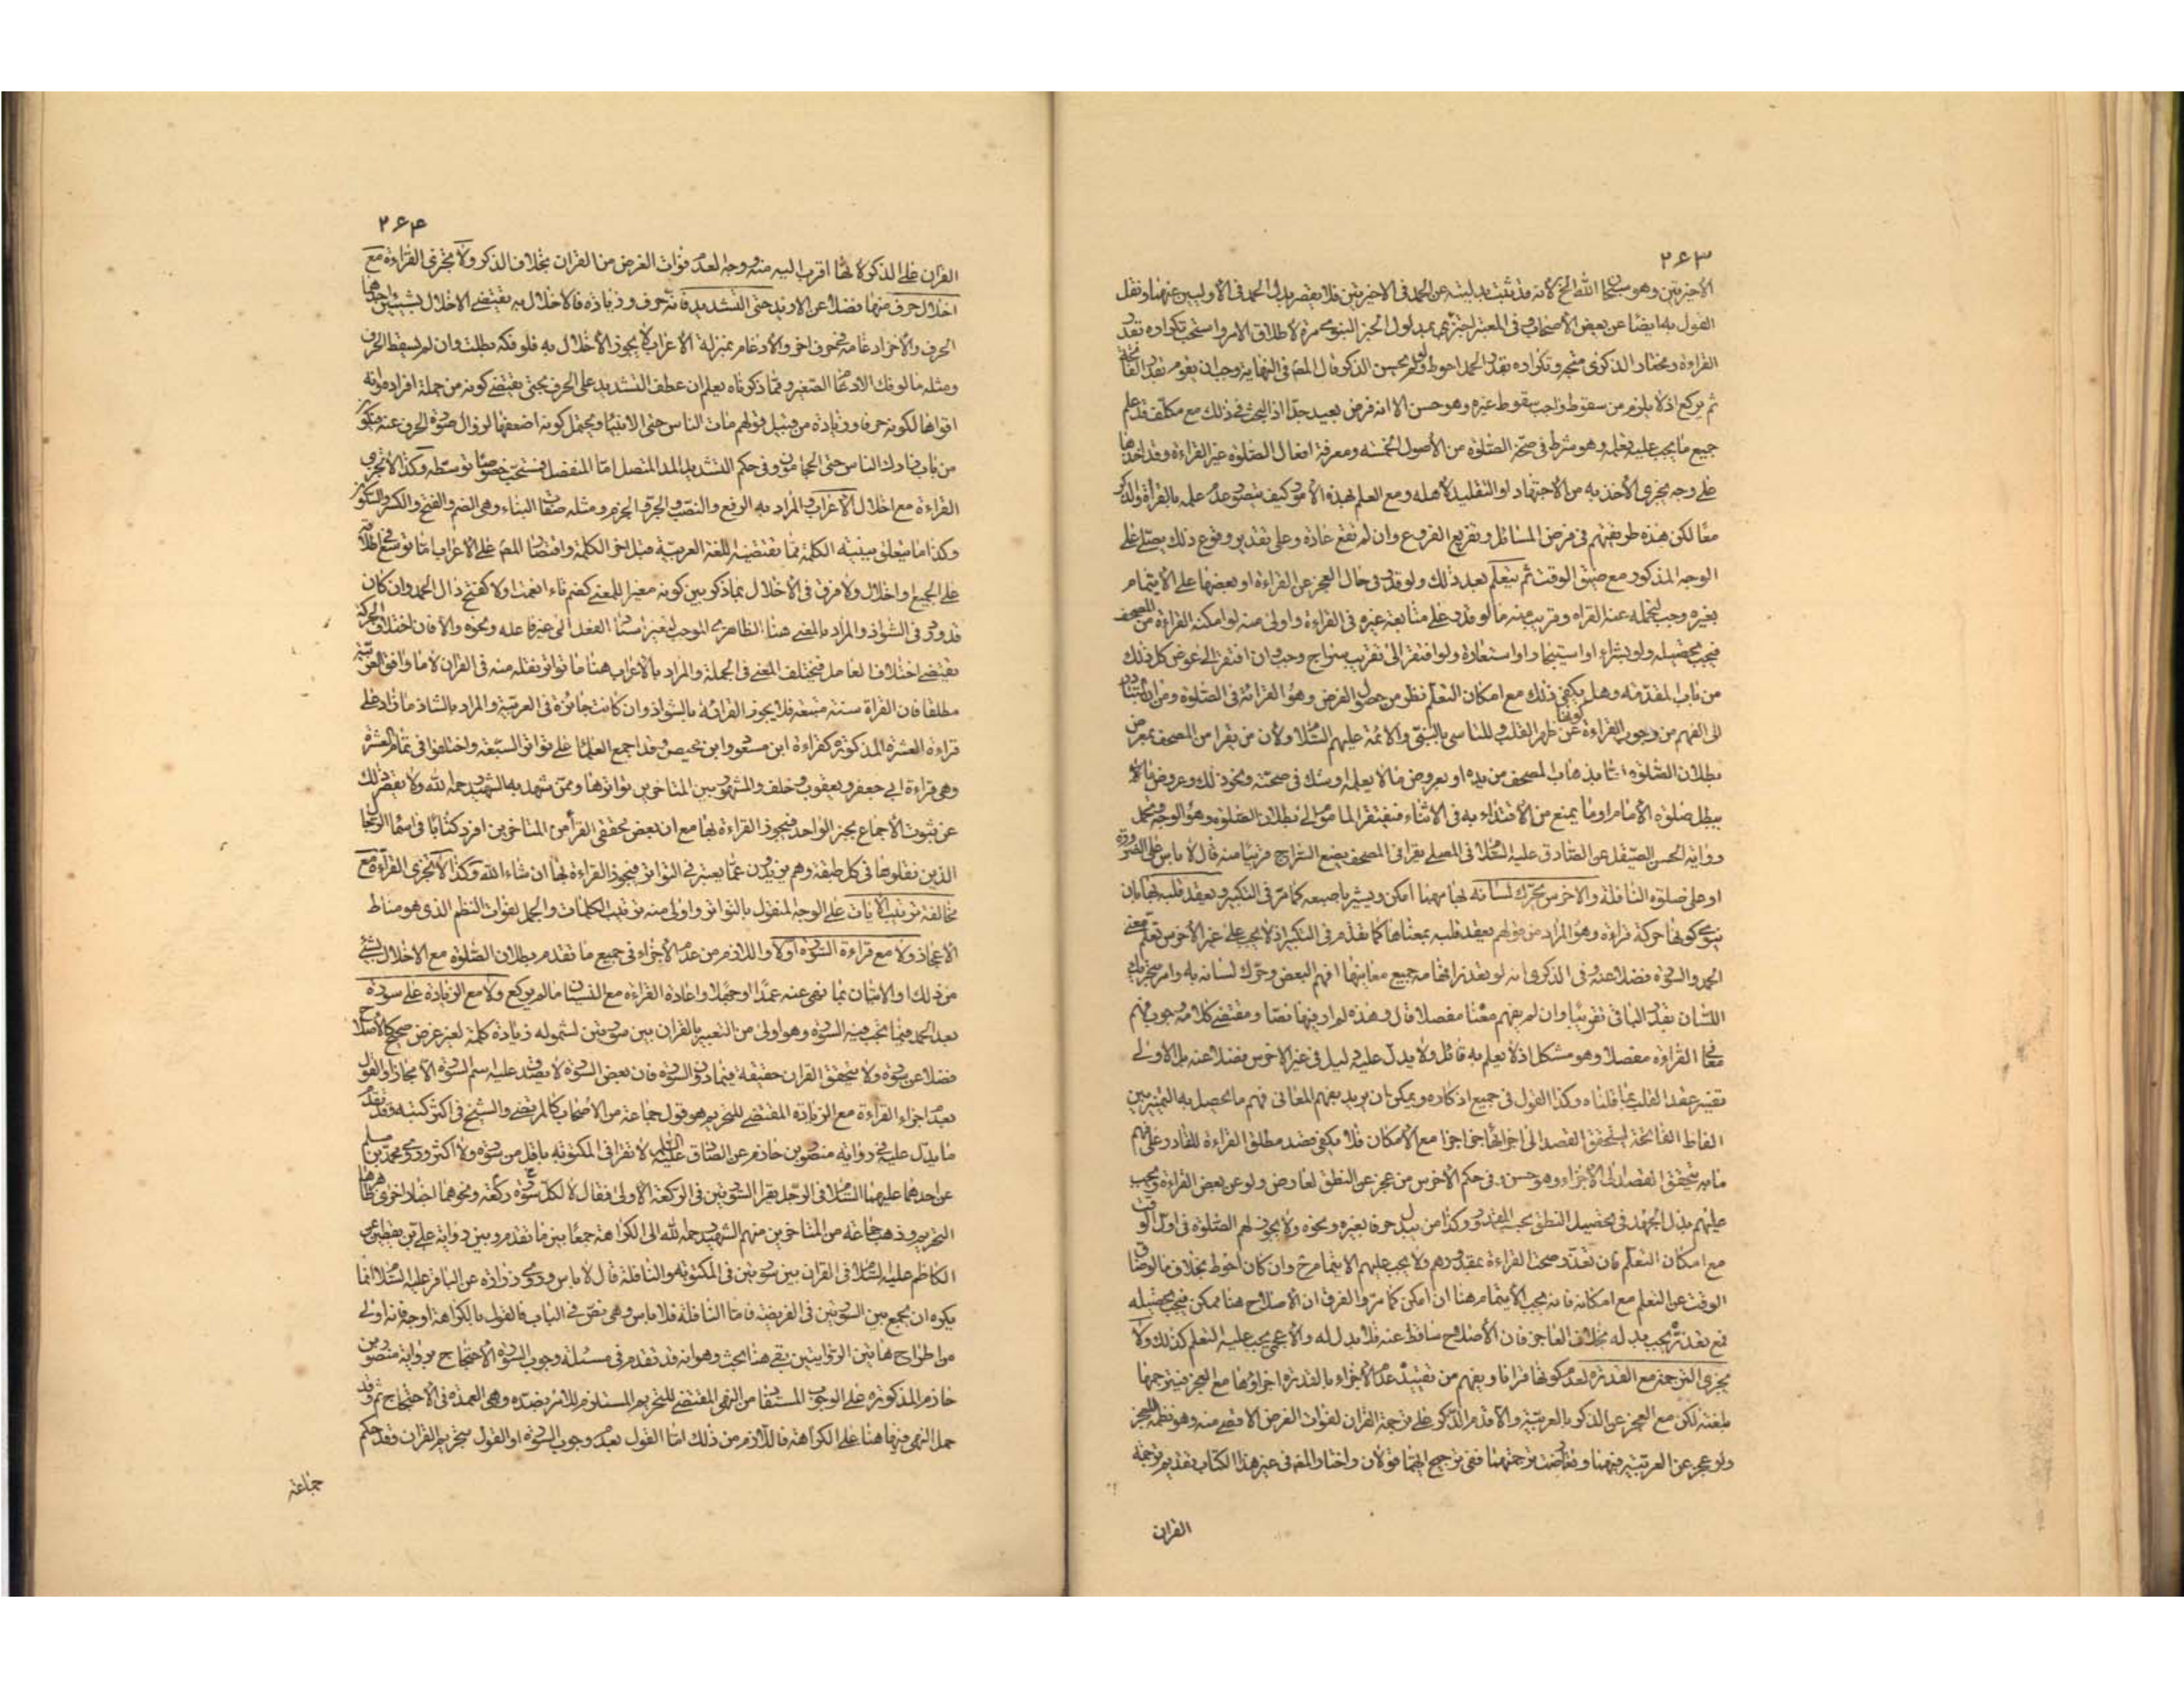 ٢۶٣
الأخيرتين وهو سبحان الله الخ لأنه قد ثبت بدليته عن الحمد في الاخيرتين فلا يقصر بدل الحمد في الأوليين عنهما ونقل
القول به ايضا عن بعض الأصحاب وفي المعتبر اجتزئ بمدلول الخبر النبوي مرة لاطلاق الامر واستحب تكراره بقدر
القراءة ومختار الذكرى متجه وتكراره بقدر الحمد احوط ولو لم يحسن الذكر قال المص في النهاية وجب ان يقوم بقدر الفاتحة
ثم يركع اذ لا يلزم من سقوط واجب سقوط غيره وهو حسن الا انه فرض بعيد جدا اذ البحث في ذلك مع مكلف قد علم
جميع ما يجب عليه تعلمه وهو شرط في صحة الصلوة من الأصول الخمسة ومعرفة افعال الصلوة غير القراءة وقد اخذها
على وجه يجزي الأخذ به من الاجتهاد او التقليد لأهله ومع العلم بهذه الأمور كيف يتصور عدم علمه بالقراءة والذكر
معا لكن هذه طريقتهم في فرض المسائل وتفريع الفروع وان لم تقع عادة وعلى تقدير وقوع ذلك يصلي على
الوجه المذكور مع ضيق الوقت ثم يتعلم بعد ذلك ولو قدر في حال العجز عن القراءة او بعضها على الايتمام
بغيره وجب لتحمله عنه القراءة وقريب منه ما لو قدر على متابعة غيره في القراءة واولى منه لو امكنه القراءة من المصحف
فيجب تحصيله ولو بشراء او استيجار او استعارة ولو افتقر الى تقريب سراج وجب وان افتقر الى عوض كل ذلك
من باب المقدمة وهل يكفي ذلك مع امكان التعلم نظر من حصول الفرض وهو القرائة في الصلوة ومن ان المتبادر
الى الفهم من وجوب القراءة كونها عن ظهر القلب وللتأسي بالنبي والائمة عليهم السلام ولأن من يقرا من المصحف بمعرض
بطلان الصلوة اما بذهاب المصحف من يده او بعروض ما لا يعلمه او شك في صحته ونحو ذلك وعروض ما لا
يبطل صلوة الأمام او ما يمنع من الاقتداء به في الاثناء فيفتقر الماموم الى بطلان الصلوة وهو الوجه وتحمل
رواية الحسن الصيقل عن الصادق عليه السلام في المصلي يقرا في المصحف يضع السراج قريبا منه قال لا باس على الضرورة
او على صلوة النافلة والاخرس يحرك لسانه بها مهما امكن ويشير باصبعه كما مر في التكبير ويعقد قلبه بها بان
ينوي كونها حركة قراءة وهو المراد من قولهم يعقد قلبه بمعناها كما تقدم في التكبير اذ لا يجب على غير الأخرس تعلم معنى
الحمد والسورة فضلا عنه وفي الذكرى انه لو تعذر افهامه جميع معانيها افهم البعض وحرك لسانه به وامر بتحريك
اللسان بقدر الباقي تقريبا وان لم يفهم معناه مفصلا قال وهذه لم ار فيها نصا ومقتضى كلامه وجوب فهم
معاني القراءة مفصلا وهو مشكل اذ لا يعلم به قائل ولا يدل عليه دليل في غير الاخرس فضلا عنه بل الاولى
تفسير عقد القلب بما قلناه وكذا القول في جميع اذكاره ويمكن ان يريد بفهم المعاني فهم ما يحصل به التمييز بين
الفاظ الفاتحة ليتحقق القصد الى اجزائها جزءا جزءا مع الامكان فلا يكفي قصد مطلق القراءة للقادر على فهم
ما به يتحقق القصد الى الأجزاء وهو حسن وفي حكم الاخرس من عجز عن النطق لعارض ولو عن بعض القراءة ويجب
عليهم بذل الجهد في تحصيل النطق بحسب المقدور وكذا من يبدل حرفا بغيره ونحوه ولا يجوز لهم الصلوة في اول الوقت
مع امكان التعلم فان تعذر صحت القراءة بمقدورهم ولا يجب عليهم الايتمام ح وان كان احوط بخلاف ما لو ضاق
الوقت عن التعلم مع امكانه فانه يجب الايتمام هنا ان امكن كما مر والفرق ان الاصلاح هنا ممكن فيجب تحصيله
فمع تعذره يجب بدله بخلاف العاجز فان الأصلاح ساقط عنه فلا بدل له والأعجمي يجب عليه التعلم كذلك ولا
يجزي الترجمة مع القدرة لعدم كونها قرانا ويفهم من تقييد عدم الاجزاء بالقدرة اجزاؤها مع العجز فيترجمها
بلغته لكن مع العجز عن الذكر بالعربية والا قدم الذكر على ترجمة القران لفوات الغرض الاقصى منه وهو نظمه المعجز
ولو عجز عن العربية فيهما وتعارضت ترجمتهما ففي ترجيح ايهما قولان واختار المص في غير هذا الكتاب تقديم ترجمة
القران
٢۶۴
القران على الذكر لانها اقرب اليه منه ووجه العدم فوات الغرض من القران بخلاف الذكر ولا يجزى القراءة مع
اخلال حرف منها فضلا عن الازيد حتى التشديد فانه حرف وزيادة فالاخلال به يقتضي الاخلال بشيئين احدهما
الحرف والأخر ادغامه في حرف اخر والأدغام بمنزلة الأعراب لا يجوز الأخلال به فلو فكه بطلت وان لم يسقط الحرف
ومثله ما لو فك الادغام الصغير ومما ذكرناه يعلم ان عطف التشديد على الحرف بحتى يقتضي كونه من جملة افراده وانه
اقواها لكونه حرفا وزيادة من قبيل قولهم مات الناس حتى الانبياء ويحتمل كونه اضعفها لزوال صورة الحرف عنه فيكون
من باب زارك الناس حتى الحجامون وفي حكم التشديد المد المتصل اما المنفصل فمستحب خصوصا توسطه وكذا لا تجزى
القراءة مع اخلال الأعراب والمراد به الرفع والنصب والجر والجزم ومثله صفات البناء وهي الضم والفتح والكسر والسكون
وكذا ما يتعلق ببنية الكلمة مما تقتضيه اللغة العربية قبل اخر الكلمة واقتصار المص على الأعراب اما توسع في اطلاقه
على الجميع او اخلال ولا فرق في الأخلال بما ذكر بين كونه مغيرا للمعنى كضم تاء انعمت اولا كفتح دال الحمد وان كان
قد ورد في الشواذ والمراد بالمعنى هنا الظاهري الموجب لتغير اسناد الفعل الى غير فاعله ونحوه والا فان اختلاف الحركة
يقتضي اختلاف العامل فيختلف المعنى في الجملة والمراد بالأعراب هنا ما تواتر نقله منه في القران لا ما وافق العربية
مطلقا فان القراءة سنة متبعة فلا يجوز القرائة بالشواذ وان كانت جائزة في العربية والمراد بالشاذ ما زاد على
قراءة العشرة المذكورة كقراءة ابن مسعود وابن محيصن وقد اجمع العلماء على تواتر السبعة واختلفوا في تمام العشرة
وهي قراءة ابي جعفر ويعقوب وخلف والمشهور بين المتاخرين تواترها وممن شهد به الشهيد رحمه الله ولا يقصر ذلك
عن ثبوت الاجماع بخبر الواحد فيجوز القراءة بها مع ان بعض محققي القراء من المتاخرين افرد كتابا في اسماء الرجال
الذين نقلوها في كل طبقة وهم يزيدون عما يعتبر في التواتر فيجوز القراءة بها ان شاء الله وكذا لا تجزى القراءة مع
مخالفة ترتيب الأيات على الوجه المنقول بالتواتر واولى منه ترتيب الكلمات والجمل لفوات النظم الذي هو مناط
الأعجاز ولا مع قراءة السورة اولا واللازم من عدم الأجزاء في جميع ما تقدم بطلان الصلوة مع الاخلال بشئ
من ذلك او الاتيان بما نهي عنه عمدا او جهلا واعادة القراءة مع النسيان ما لم يركع ولا مع الزيادة على سورة
بعد الحمد فيما تجب فيه السورة وهو اولى من التعبير بالقران بين سورتين لشموله زيادة كلمة لغير غرض صحيح كالأصلاح
فضلا عن سورة ولا يتحقق القران حقيقة فيما دون السورة فان بعض السورة لا يصدق عليه اسم السورة الا مجازا والقول
بعدم اجزاء القراءة مع الزيادة المقتضي للتحريم هو قول جماعة من الأصحاب كالمرتضى والشيخ في اكثر كتبه وقد تقدم
ما يدل عليه في رواية منصور بن حازم عن الصادق عليه السلام لا تقرا في المكتوبة باقل من سورة ولا اكثر وروى محمد بن مسلم
عن احدهما عليهما السلام في الرجل يقرا السورتين في الركعة الاولى فقال لا لكل سورة ركعة ونحوهما اخبار اخرى ظاهرها
التحريم وذهب جماعة من المتاخرين منهم الشهيد رحمه الله الى الكراهة جمعا بين ما تقدم وبين رواية علي بن يقطين عن
الكاظم عليه السلام في القران بين سورتين في المكتوبة والنافلة قال لا باس وروى زرارة عن الباقر عليه السلام انما
يكره ان يجمع بين السورتين في الفريضة فاما النافلة فلا باس وهي نص في الباب فالقول بالكراهة اوجه فانه اولى
من اطراح هاتين الروايتين بقي هنا بحث وهو انه قد تقدم في مسئلة وجوب السورة الأحتجاج برواية منصور بن
حازم المذكورة على الوجوب المستفاد من النهي المقتضي للتحريم المستلزم للامر بضده وهي العمدة في الأحتجاج ثم وقد
حمل النهي فيها هنا على الكراهة فاللازم من ذلك اما القول بعدم وجوب السورة او القول بتحريم القران وقد حكم
جماعة